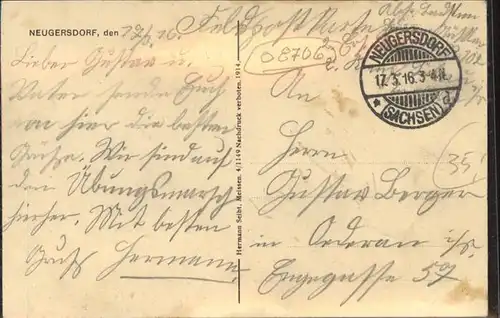 NEUGERSDORF, den 17/3. 16.
Feldpostkarte
Lieber Gustav u.
Vater sende Euch
von hier die besten
Grüße. Wir sind auf
den Übungsmarsch
hierher. Mit besten
Gruß Hermann.
Hermann Seibt, Meissen. 4/1149 Nachdruck verboten. 1914.
08706
NEUGERSDORF
17. 3. 16. 3-4 N.
* (SACHSEN) d
An
Herrn
Gustav Berger
in Oederan i/S.
Engegasse 57
35